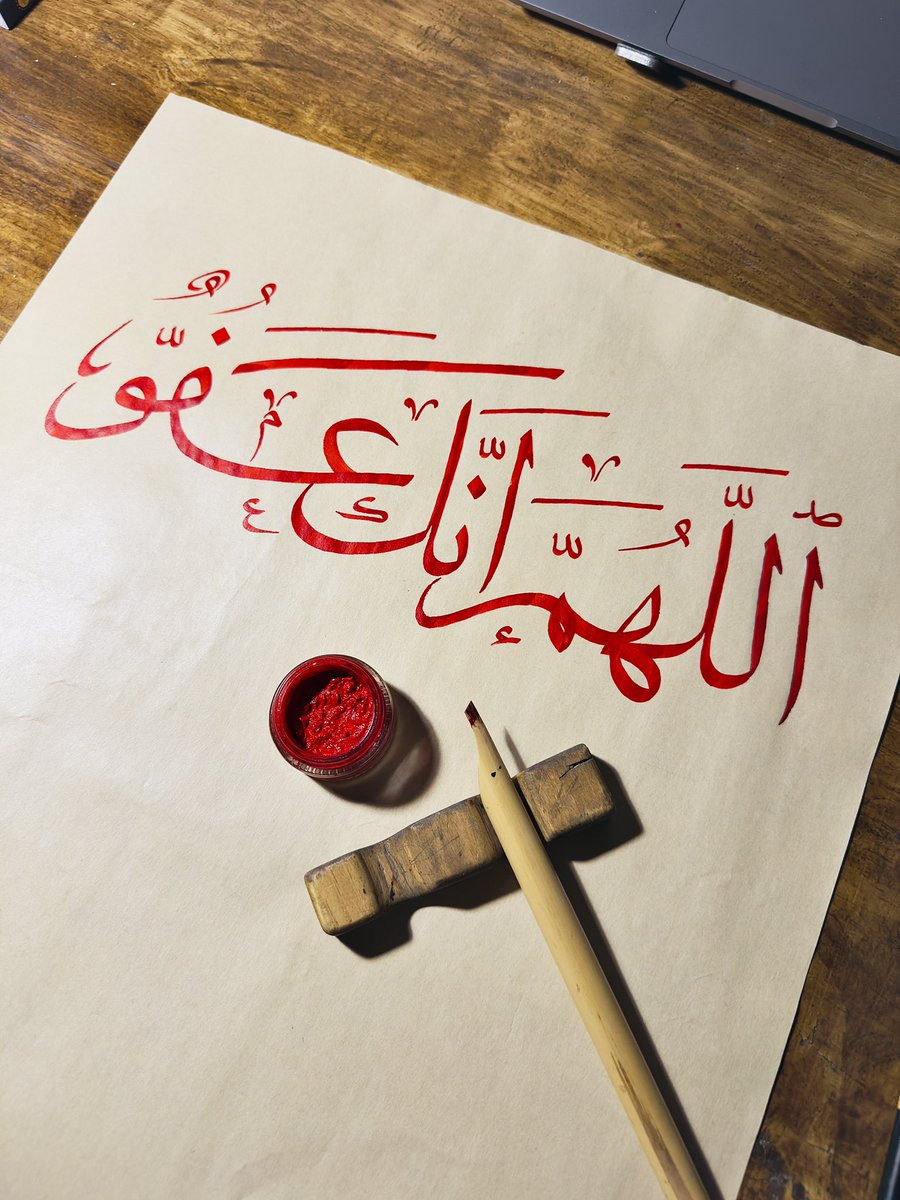 ٱللَّهُمَّ إِنَّكَ عَفُوٌّ